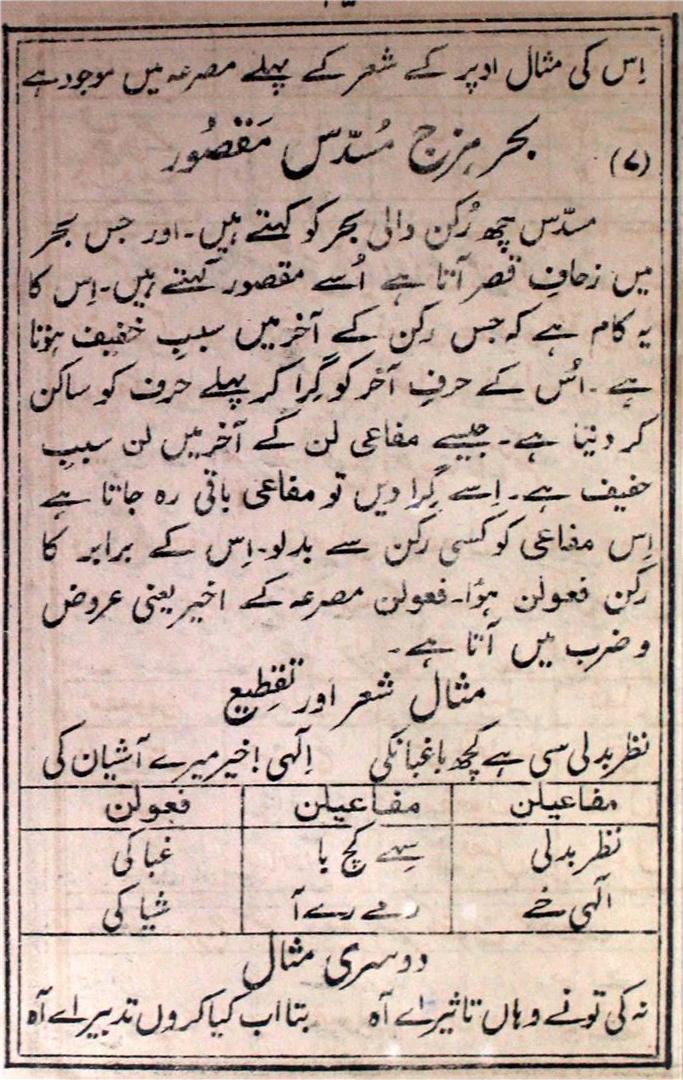 اِس کی مثال اوپر کے شعر کے پہلے مصرعہ میں موجود ہے
(۷) بحر ہزج مُسدّس مَقصُور
مسدّس چھ رُکن والی بحر کو کہتے ہیں۔ اور جس بحر
میں زحافِ قصر آتا ہے اُسے مقصور کہتے ہیں۔ اِس کا
یہ کام ہے کہ جس رکن کے آخر میں سببِ خفیف ہوتا
ہے۔ اُس کے حرفِ آخر کو گِرا کر پہلے حرف کو ساکن
کر دیتا ہے۔ جیسے مفاعی لن کے آخر میں لن سببِ
خفیف ہے۔ اِسے گِرا دیں تو مفاعی باقی رہ جاتا ہے
اِس مفاعی کو کسی رکن سے بدلو۔ اِس کے برابر کا
رکن فعولن ہوُا۔ فعولن مصرعہ کے اخیر یعنی عروض
و ضرب میں آتا ہے۔
مثال شعر اور تقطِیع
نظر بدلی سی ہے کچھ باغبانکی اِلٰہی! خیر میرے آشیان کی
مفاعیلن مفاعیلن فعولن
نظر بدلی سِہے کچ با غبا کی
الٰہی خے رمے رے آ شیا کی
دوسری مثال
نہ کی تونے وہاں تاثیر اے آہ بتا اب کیا کروں تدبیر اے آہ